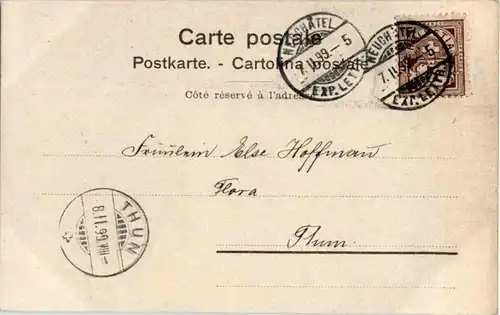 Carte postale
Postkarte. - Cartolina postale
Côté réservé à l'adresse
NEUCHÂTEL
7.II.99.-5
EXP. LETT.
NEUCHÂTEL
7.II.99.-5
EXP. LETT.
Fräulein Else Hoffmann
Flora
Thun.
THUN
8.II.99.VII-